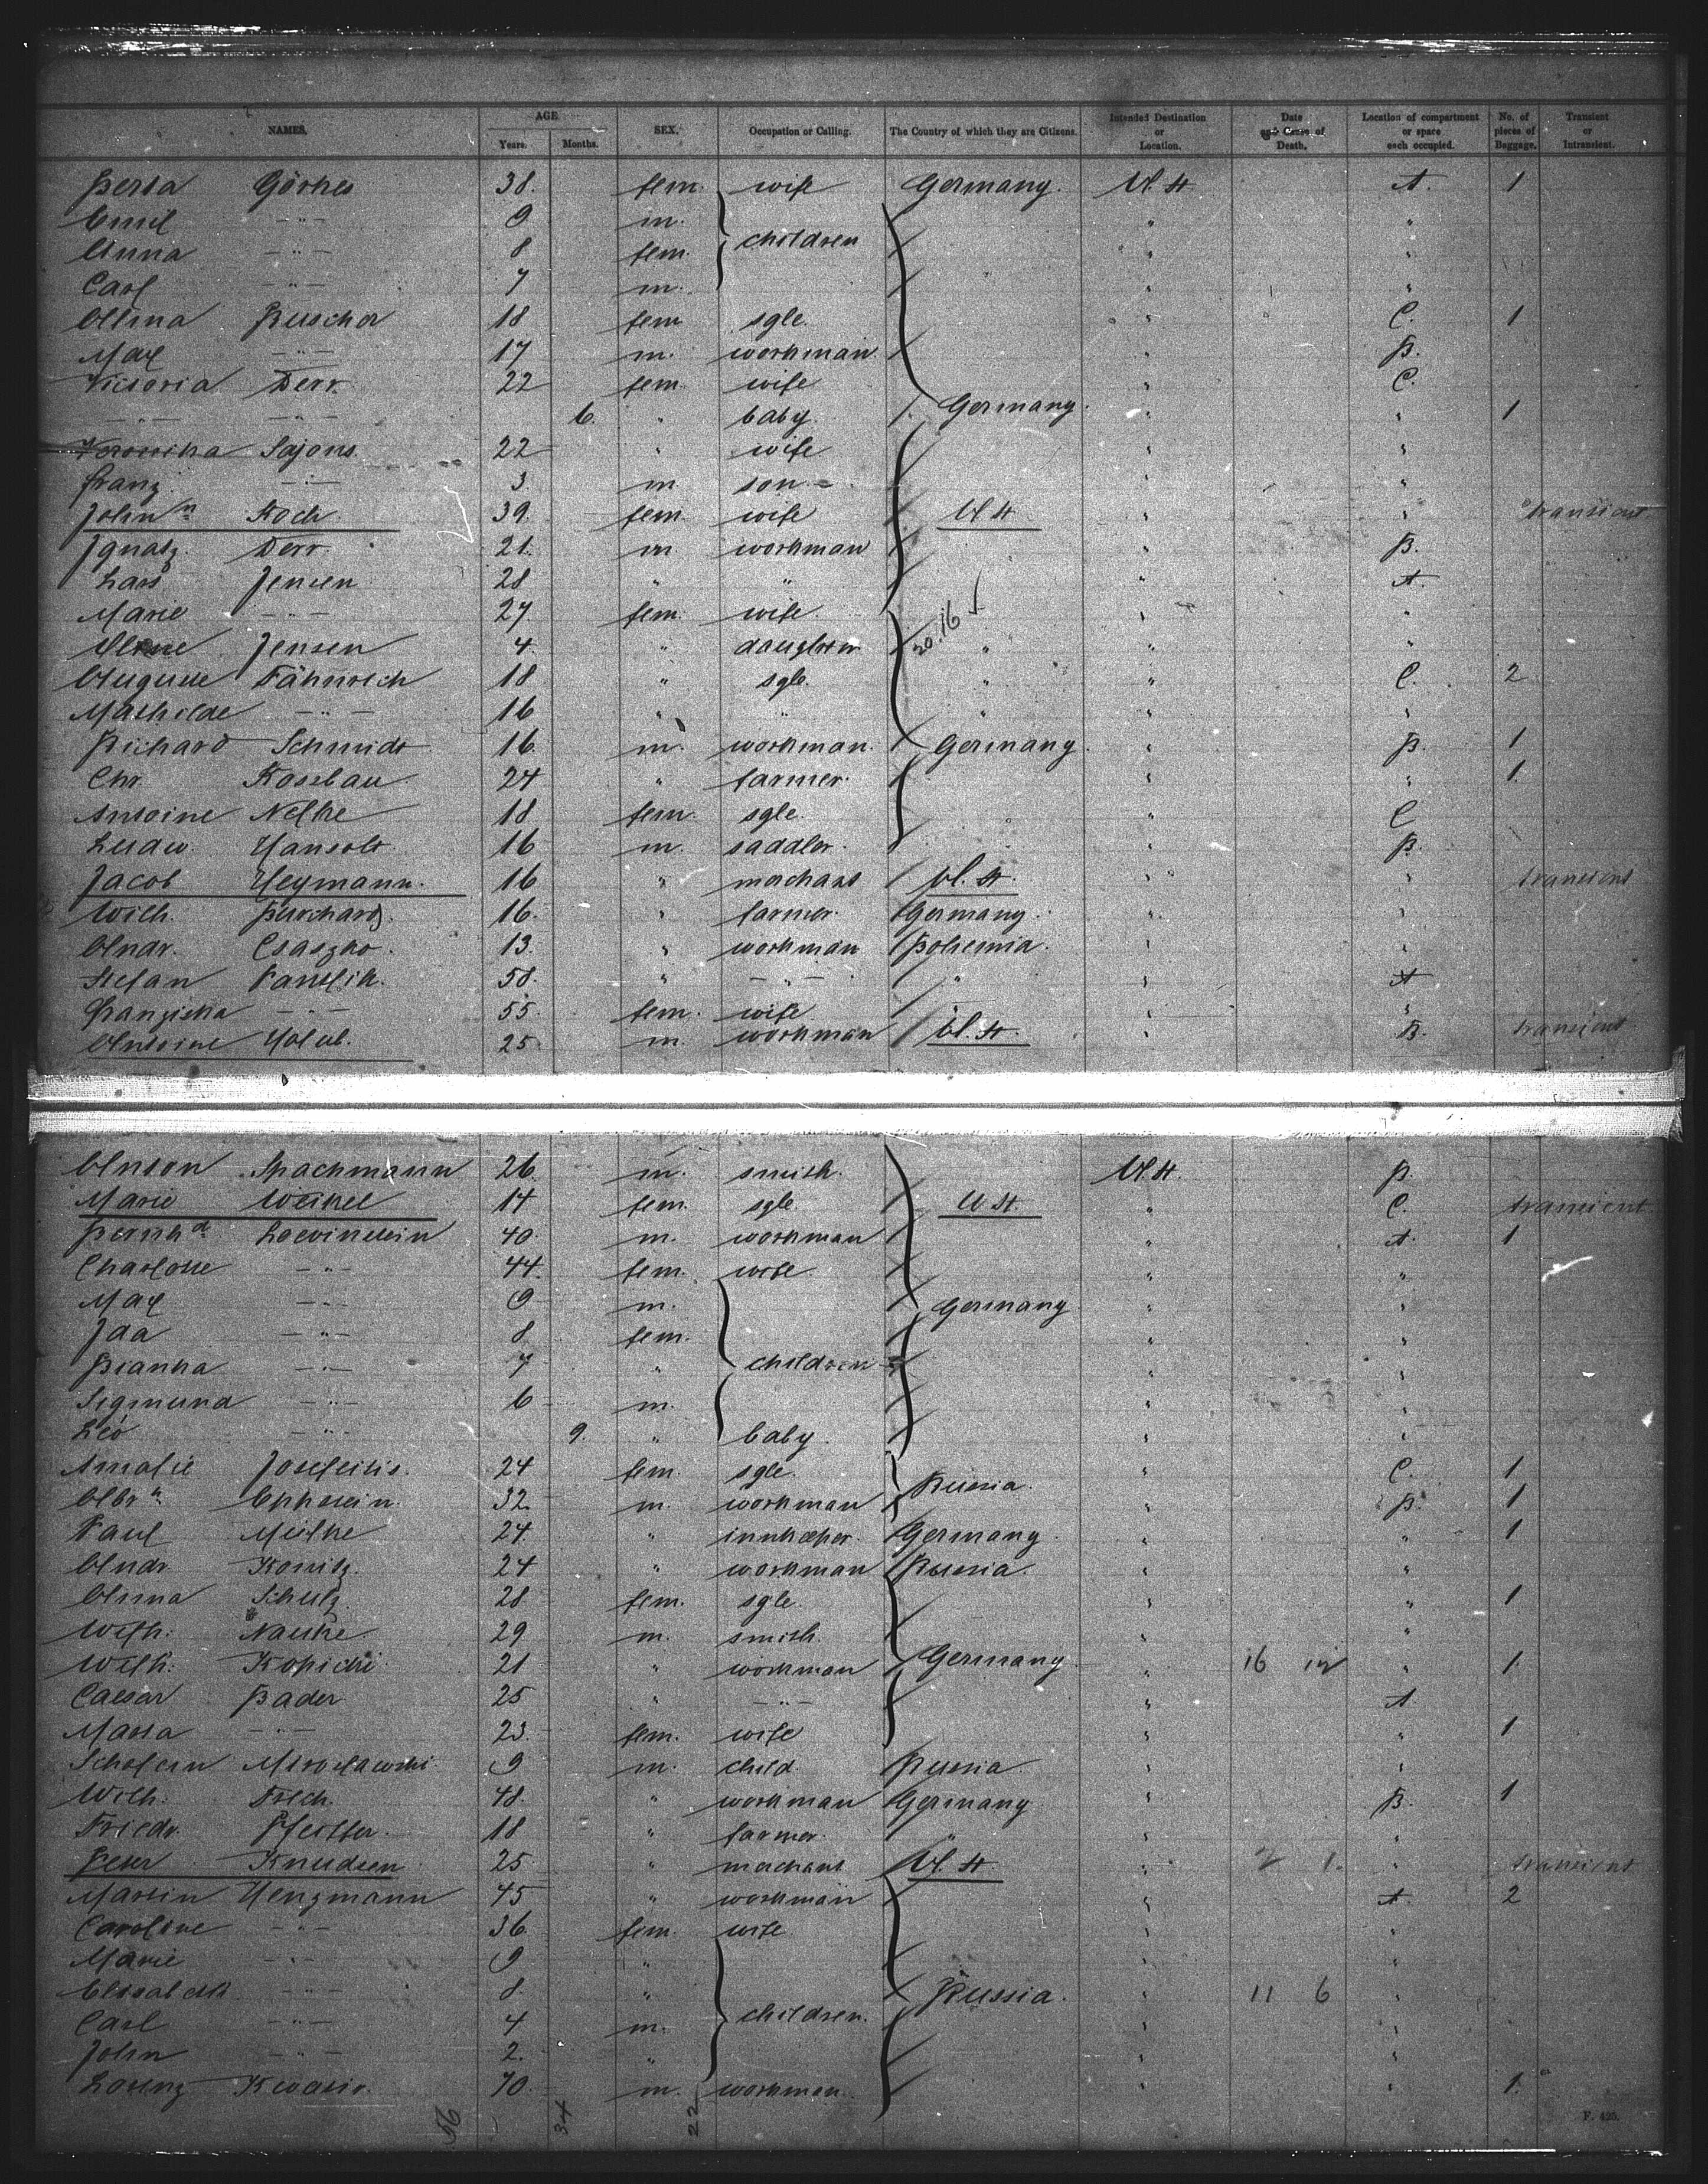 NAMES. AGE Years. Months. SEX. Occupation or Calling. The Country of which they are Citizens. Intended Destination or Location. Date and Cause of Death. Location of compartment or space each occupied. No. of pieces of Baggage. Transient or Intransient.
Berta Görkes 38. fem. wife Germany. U. St. A. 1
Emil -"- 9 m. "  "
Anna -"- 8 fem. children " "
Carl -"- 7 m. " "
Alma Buscher 18 fem sgle. " C. 1
Max -"- 17 m. workman " B.
Victoria Derr. 22 fem. wife " C.
-"- -"- 6. " baby. Germany. " " 1
Veronika Sajons. 22 " wife " "
Franz -"- 3 m. son " "
Johnⁿ Koch. 39. fem. wife U St. " " transient
Ignatz. Derr. 21. m workman " B.
Lars Jensen 28 " " " A.
Marie -"- 27 fem. wife. 20.16 " "
Jensen 4. " daughter " " "
Auguste Fähnrich 18 " sgle. " " C. 2
Mathilde -"- 16 " " " " "
Richard Schmidt 16. m. workman. Germany " B. 1
Chr. Kossbau 24 " farmer. " " 1.
Antoine Nelke 18 fem. sgle. " " C
Ludw. Hansolt 16 m. saddler. " B.
Jacob Heymann. 16 " merchant U. St. " " transient
Wilh. Burchard. 16. " farmer. Germany. " "
Andr. Csaszko. 13. " workman Bohemia. " "
Stefan Pawlik. 58. " -"- " " A
Franziska -"- 55. fem. wife " " "
Antoine Holub. 25. m. workman U. St. " B. transient
Anton Spachmann 26. m. smith. U. St. B.
Marie Weikel 14 fem. sgle. U St. " C. transient
Bernhᵈ Loewinstein 40. m. workman " A. 1
Charlotte -"- 44. fem. wife. " "
Max -"- 9 m. Germany " "
Ida -"- 8 fem. " "
Bianka -"- 7 " children " "
Sigmund -"- 6 m. " "
Leo -"- 9. " baby. " "
Amalie Josefeitis. 24 fem. sgle. Russia. " C. 1
Abrⁿ Ephsein. 32 m. workman " B. 1
Paul Mielke 24. " innkeeper. Germany " " 1
Andr. Konitz. 24 " workman Russia. " "
Anna Schulz. 28 fem. sgle. " " 1
Wilh. Nauke 29 m. smith. " "
Wilh. Kopicki 21 " workman Germany " 16 12 " 1
Caesar Bader 25 " -"- " A
Marta -"- 23. fem. wife " " 1
Scholem Miroslawski. 9 m. child. Russia " "
Wilh. Frech. 48. " workman Germany " B. 1
Friedr. Pfeiffer. 18 " farmer. " " "
Peter Knudsen 25 " merchant U. St. " 2 1. " transient
Martin Henzmann 45 " workman " A. 2
Caroline -"- 36. fem. wife " "
Marie -"- 9 " " "
Elisabeth -"- 8. " Russia. " 11 6 "
Carl -"- 4 m. children. " "
John -"- 2. " " "
Lorenz 70. m. workman. " " 1.
56 34 22
F. 420.